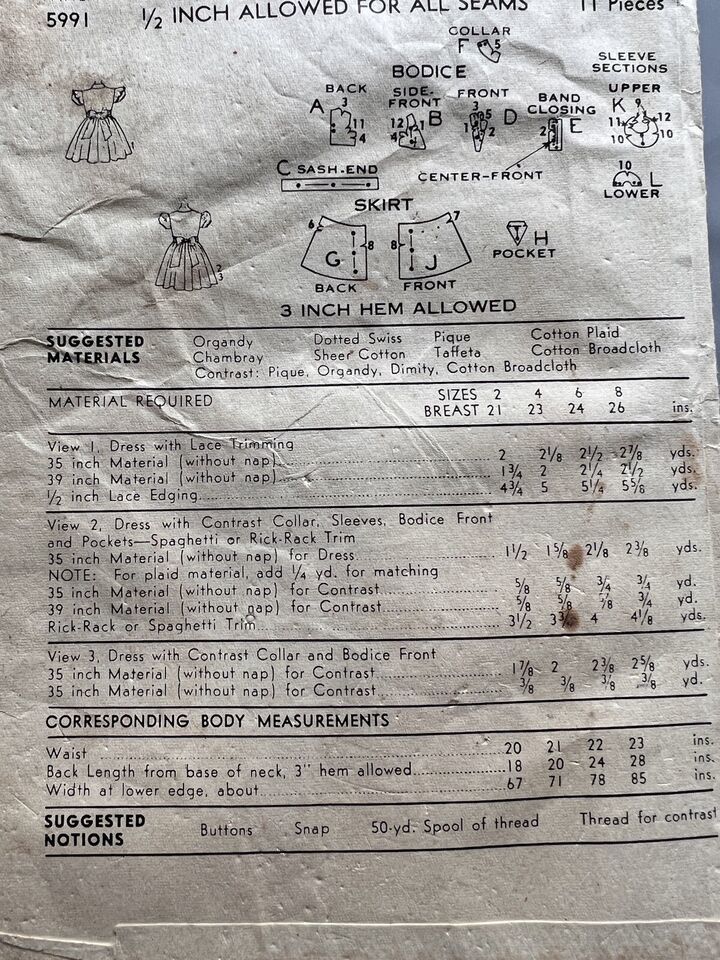 5991 ½ INCH ALLOWED FOR ALL SEAMS 11 Pieces
COLLAR
F 5
BODICE
SLEEVE SECTIONS
BACK SIDE-FRONT FRONT BAND CLOSING UPPER
A 3 11 4
12 1 4 B
3 5 1 2 D
2 E
K 9 11 12 10 10
C SASH-END
CENTER-FRONT
10 L
LOWER
SKIRT
6 G 8
8 J 7
H
POCKET
BACK FRONT
1
2
3
3 INCH HEM ALLOWED
SUGGESTED MATERIALS
Organdy Dotted Swiss Pique Cotton Plaid
Chambray Sheer Cotton Taffeta Cotton Broadcloth
Contrast: Pique, Organdy, Dimity, Cotton Broadcloth
MATERIAL REQUIRED SIZES 2 4 6 8
BREAST 21 23 24 26 ins.
View 1, Dress with Lace Trimming
35 inch Material (without nap) 2 2⅛ 2½ 2⅞ yds.
39 inch Material (without nap) 1¾ 2 2¼ 2½ yds.
½ inch Lace Edging 4¾ 5 5¼ 5⅝ yds.
View 2, Dress with Contrast Collar, Sleeves, Bodice Front
and Pockets—Spaghetti or Rick-Rack Trim
35 inch Material (without nap) for Dress 1½ 1⅝ 2⅛ 2⅜ yds.
NOTE: For plaid material, add ¼ yd. for matching
35 inch Material (without nap) for Contrast ⅝ ⅝ ¾ ¾ yd.
39 inch Material (without nap) for Contrast ⅝ ⅝ ⅝ ¾ yd.
Rick-Rack or Spaghetti Trim 3½ 4 4⅛ yds.
View 3, Dress with Contrast Collar and Bodice Front
35 inch Material (without nap) for Contrast 1⅞ 2 2⅜ 2⅝ yds.
35 inch Material (without nap) for Contrast ⅜ ⅜ ⅜ ⅜ yd.
CORRESPONDING BODY MEASUREMENTS
Waist 20 21 22 23 ins.
Back Length from base of neck, 3" hem allowed 18 20 24 28 ins.
Width at lower edge, about 67 71 78 85 ins.
SUGGESTED NOTIONS
Buttons Snap 50-yd. Spool of thread Thread for contrast